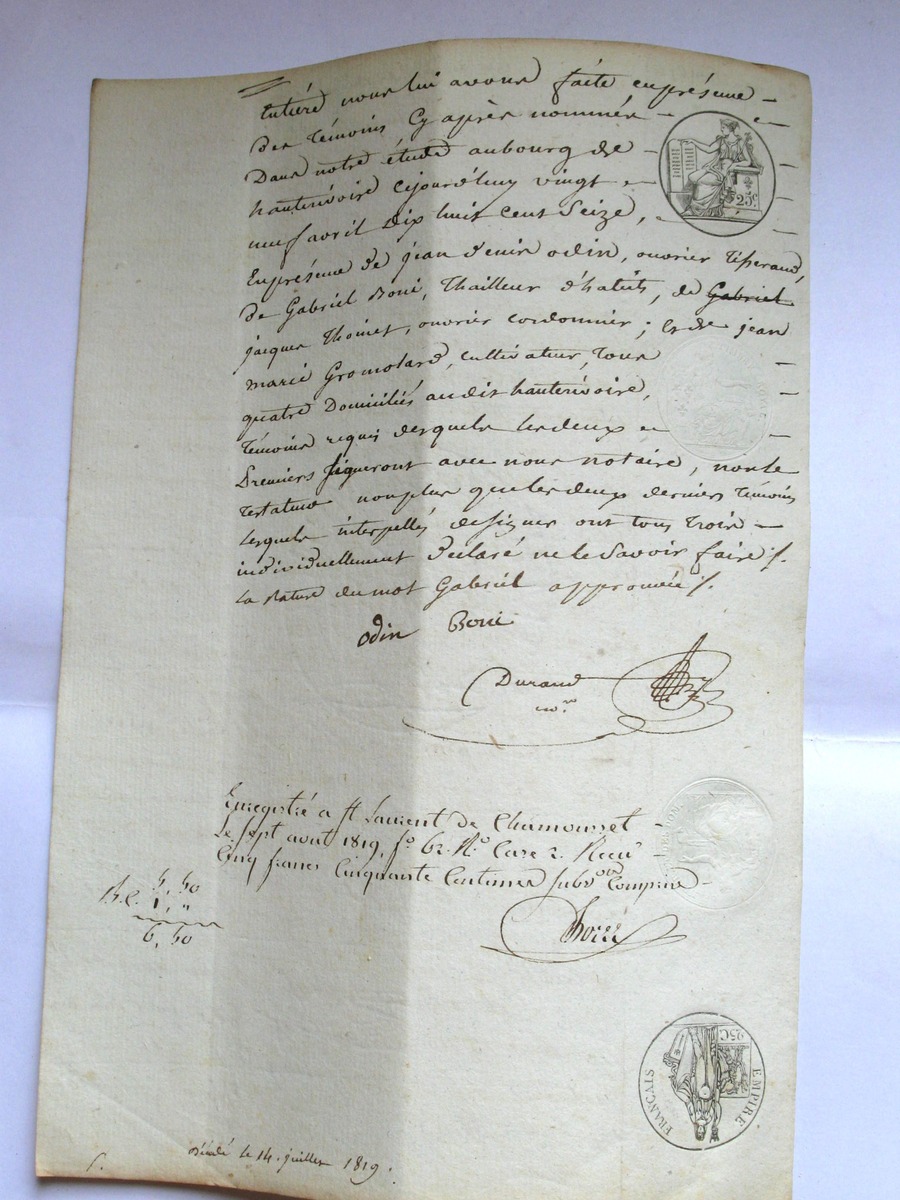 Entière nous lui avons faite enprésence
des témoins Cy après nommés
Dans notre étude aubourg de
hauterivoire cejourd'huy vingt
neuf avril dix huit cent Seize,
Enprésence de jean denis odin, ouvrier tisserand,
de Gabriel Boni, Thailleur d'habits, de Gabriel
jacques Thoinet, ouvrier cordonnier; & de jean
marie Gromolard, cultivateur, tous
quatre Domiciliés audit hauterivoire,
témoins requis desquels lesdeux
Premiers signeront avec nous notaire, non le
testateur nonplus quelesdeux derniers témoins
lesquels interpellés designer ont tous trois
individuellement déclaré ne le Savoir faire /.
la Rature dumot Gabriel approuvée /.
odin Boni
Durand
no.re
25c
Enregistré a St Laurent de Chamousset
Le sept aout 1819, fo 62. Ro Case 2. Recu
Cinq francs Cinquante Centimes Subvon Comprise
5, 50
1, "
6, 50
EMPIRE FRANÇAIS
25C
Décédé le 14 juillet 1819.